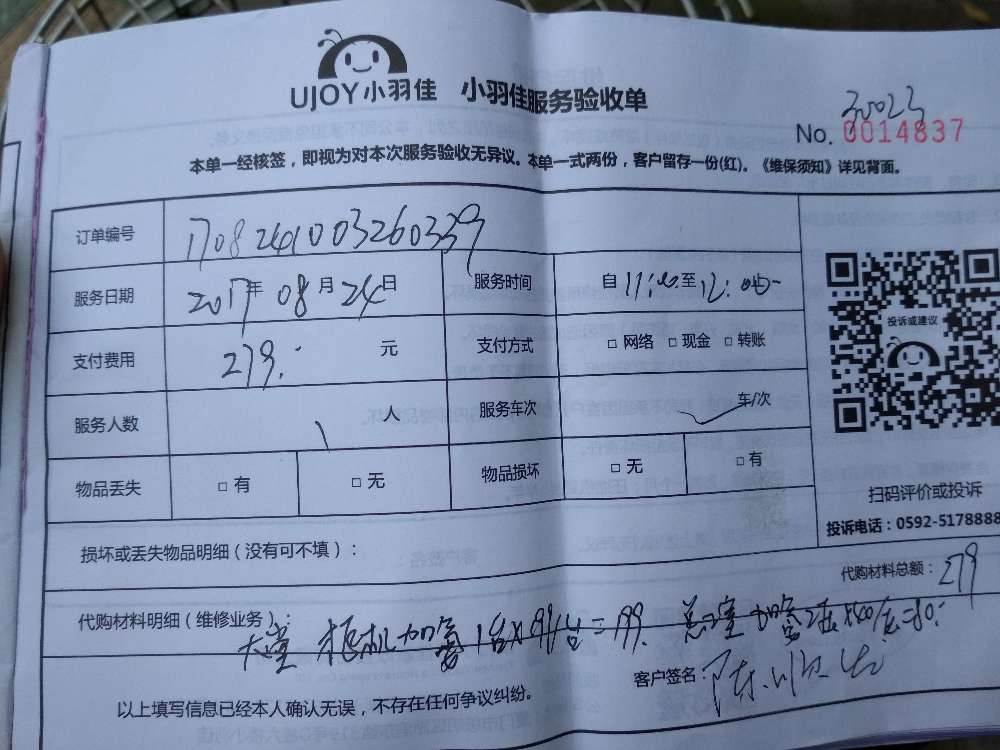 UJOY小羽佳 小羽佳服务验收单
No. 0014837
本单一经核签，即视为对本次服务验收无异议。本单一式两份，客户留存一份(红)。《维保须知》详见背面。
订单编号 17082410003260339
服务日期 2017年 08月 24日 服务时间 自 至
支付费用 279. 元 支付方式 □ 网络 □ 现金 □ 转账
服务人数 1 人 服务车次 车/次
物品丢失 □ 有 □ 无 物品损坏 □ 无 □ 有
投诉或建议
扫码评价或投诉
投诉电话：0592-5178888
损坏或丢失物品明细（没有可不填）：
代购材料总额： 279
代购材料明细（维修业务）：
大堂 柜机加氟 1台
客户签名：
以上填写信息已经本人确认无误，不存在任何争议纠纷。